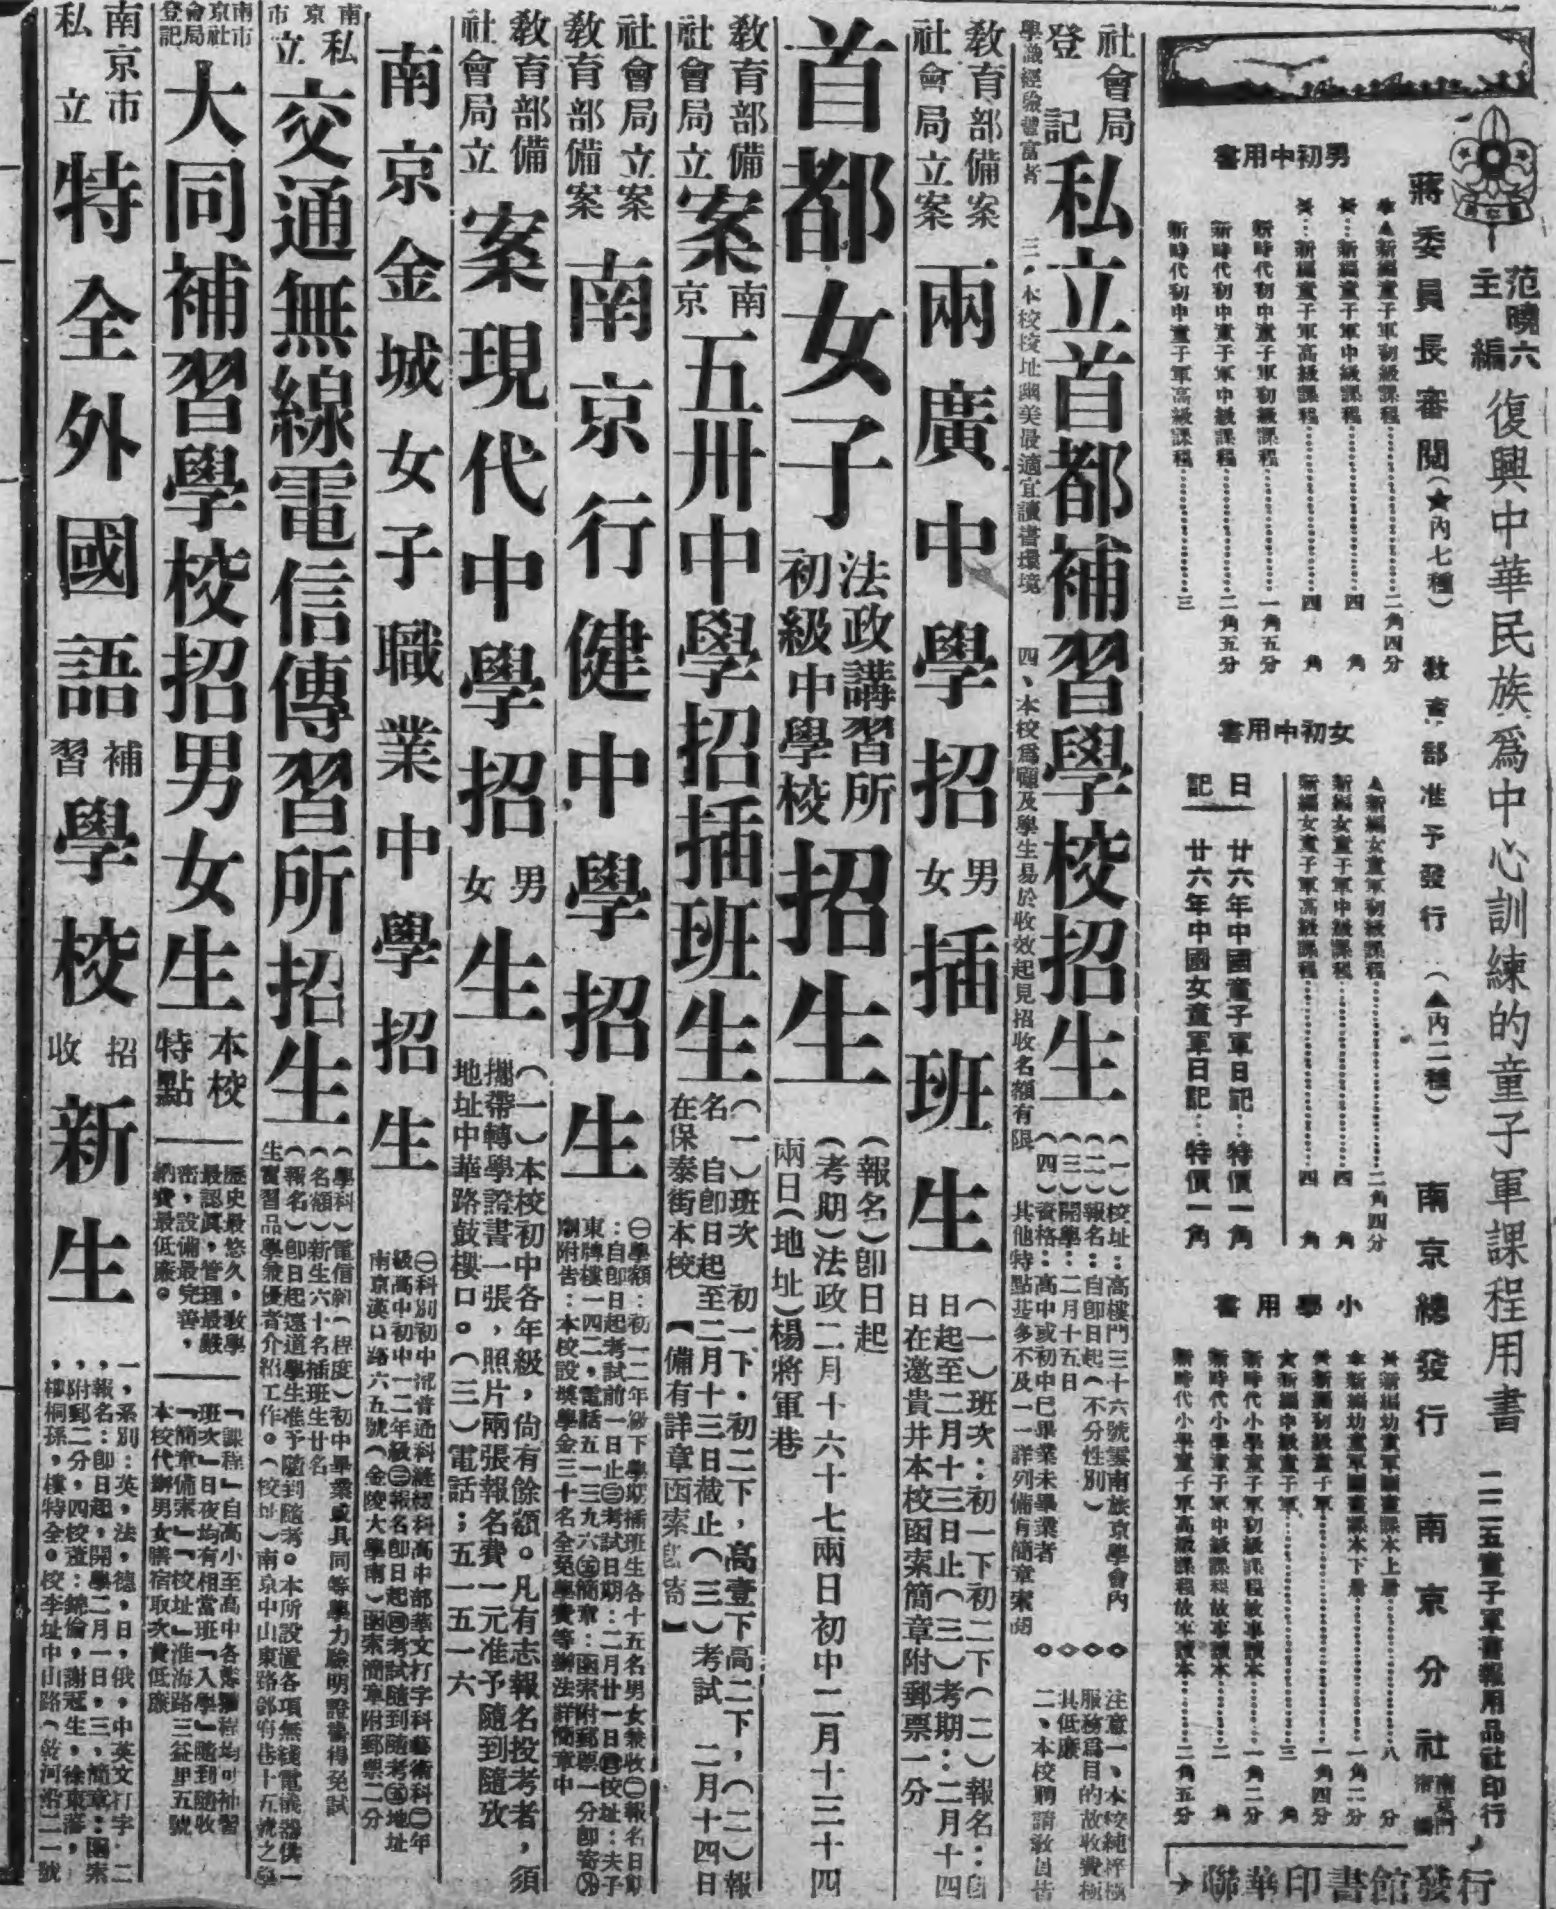 范曉六
主編
復興中華民族爲中心訓練的童子軍課程用書
二二五童子軍書報用品社印行
蔣委員長審閱(★內七種)
教育部准予發行
(▲內二種)
南京總發行
南京分社
男初中用書
▲新編童子軍初級課程………二角四分
新編童子軍中級課程………四角
新編童子軍高級課程………四角
新時代初中童子軍初級課程………一角五分
新時代初中童子軍中級課程………二角五分
新時代初中童子軍高級課程………三
女初中用書
▲新編女童軍初級課程………二角四分
新編女童子軍中級課程………四角
新編女童子軍高級課程………四角
日記
廿六年中國童子軍日記…特價一角
廿六年中國女童軍日記…特價一角
小學用書
新編幼童軍圖畫課本上册………八分
新編幼童軍圖畫課本下册………一角二分
新編初級童子軍………一角四分
新編中級童子軍………三角
新時代小學童子軍初級課程故事讀本………一角二分
新時代小學童子軍中級課程故事讀本………二角
新時代小學童子軍高級課程故事讀本………二角五分
聯華印書館發行
社會局
登記
私立首都補習學校招生
(一)校址:高樓門三十六號雲南旅京學會內
(二)報名:自卽日起(不分性別)
(三)開學:二月十五日
(四)資格:高中或初中已畢業未畢業者
注意一、本校純粹極
服務爲目的故收費極
其低廉
二、本校聘請敎員皆
學識經驗豐富者
三,本校校址幽美最適宜讀書環境
四、本校爲顧及學生易於收效起見招收名額有限
其他特點甚多不及一一詳列備有簡章索閱
敎育部備案
社會局立案
兩廣中學招男女插班生
(一)班次:初一下初二下(二)報名:自
日起至二月十三日止(三)考期:二月十四
日在邀貴井本校函索簡章附郵票一分
首都女子
法政講習所
初級中學校
招生
(報名)卽日起
(考期)法政二月十六十七兩日初中二月十三十四
兩日(地址)楊將軍巷
敎育部備
社會局立
案
南京
五卅中學招插班生
(一)班次 初一下.初二下,高壹下高二下,(二)報
名 自卽日起至二月十三日截止(三)考試 二月十四日
在保泰街本校【備有詳章函索卽寄】
社會局立案
敎育部備案
南京行健中學招生
㊀學額:初一二年級下學期插班生各十五名男女兼收㊁報名日期
:自卽日起考試前一日止㊂考試日期:二月廿一日㊃校址:夫子
東牌樓一四二,電話五一三九六㊄簡章:函索附郵票一分卽寄㊅
附告:本校設獎學金三十名全免學費等辦法詳簡章中
敎育部備
社會局立
案
現代中學招男女生
(一)本校初中各年級,尙有餘額。凡有志報名投考者,須
攜帶轉學證書一張,照片兩張報名費一元准予隨到隨攷
地址中華路鼓樓口。(三)電話;五一五一六
南京金城女子職業中學招生
㊀科別初中部普通科縫紉科高中部華文打字科藝術科㊁年
級高中初中一二年級㊂報名卽日起㊃考試隨到隨考㊄地址
南京漢口路六五號(金陵大學南)函索簡章附郵票二分
南京市
私立
交通無線電信傳習所招生
(學科)電信組(程度)初中畢業或具同等學力證明證書得免試
(名額)新生六十名插班生廿名
(報名)卽日起遠道學生准予隨到隨考。本所設置各項無綫電儀器供一
生實習品學兼優者介紹工作。(校址)南京中山東路
南京市
社會局
登記
大同補習學校招男女生
本校
特點
歷史最悠久,敎學
最認眞,管理最嚴
密,設備最完善,
納費最低廉。
『課程』自高小至高中各
班次』日夜均有相當班『入學』隨到隨收
『簡章備索』『校址』淮海路三益里五號
本校代辦男女膳宿取次費低廉
南京市
私立
特全外國語補習學校招收新生
一,系別:英,法,德,日,俄,中英文打字 二
,報名:卽日起,開學二月一日,三,簡章:函索
,附郵二分,四校董:錦倫,謝冠生,徐東藩,
,樓桐孫,樓特全。校李址中山路(乾河沿二一號